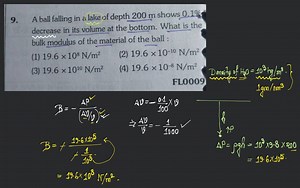 9. A ball falling in a lake of depth 200 m shows 0.1%
decrease in its volume at the bottom. What is the
bulk modulus of the material of the ball :
(1) 19.6 × 10⁸ N/m² (2) 19.6 × 10⁻¹⁰ N/m²
(3) 19.6 × 10¹⁰ N/m² (4) 19.6 × 10⁻⁸ N/m²
FL0009
Density of H₂O = 10³ kg/m³
1gm/cm³
B = - ΔP / (ΔV/V)
ΔV = - 0.1/100 × V
⇒ ΔV/V = - 1/1000
ΔP
ΔP = ρgh = 10³ × 9.8 × 200
= 19.6 × 10⁵
B = - 19.6 × 10⁵ / - 1/10³
= 19.6 × 10⁸ N/m²